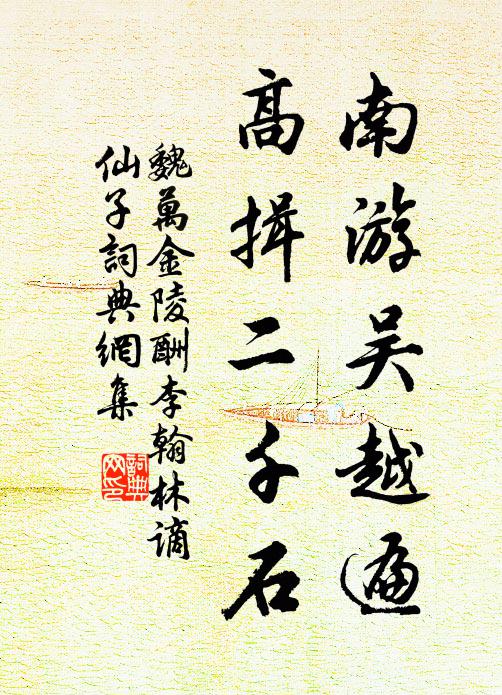 南游吴越遍
高揖二千石
魏萬金陵酬李翰林謫
仙子詞典網集
詞典
网印